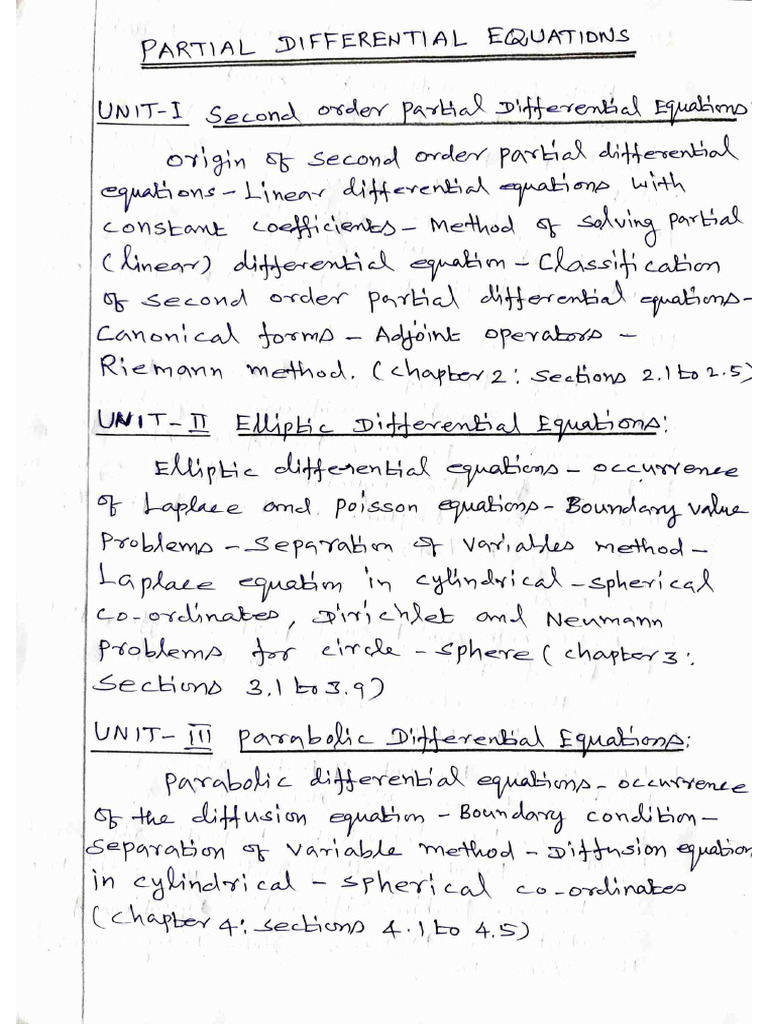 PARTIAL DIFFERENTIAL EQUATIONS
UNIT-I Second order Partial Differential Equations:
Origin of second order partial differential
equations - Linear differential equations with
constant coefficients - Method of solving partial
(linear) differential equation - Classification
of second order partial differential equations-
Canonical forms - Adjoint operators -
Riemann method. (chapter 2: sections 2.1 to 2.5)
UNIT-II Elliptic Differential Equations:
Elliptic differential equations - occurrence
of Laplace and Poisson equations - Boundary value
Problems - Separation of variables method -
Laplace equation in cylindrical - spherical
co-ordinates, Dirichlet and Neumann
Problems for circle - sphere (chapter 3:
sections 3.1 to 3.9)
UNIT-III Parabolic Differential Equations:
Parabolic differential equations - occurrence
of the diffusion equation - Boundary condition -
Separation of variable method - Diffusion equation
in cylindrical - spherical co-ordinates
(chapter 4: sections 4.1 to 4.5)